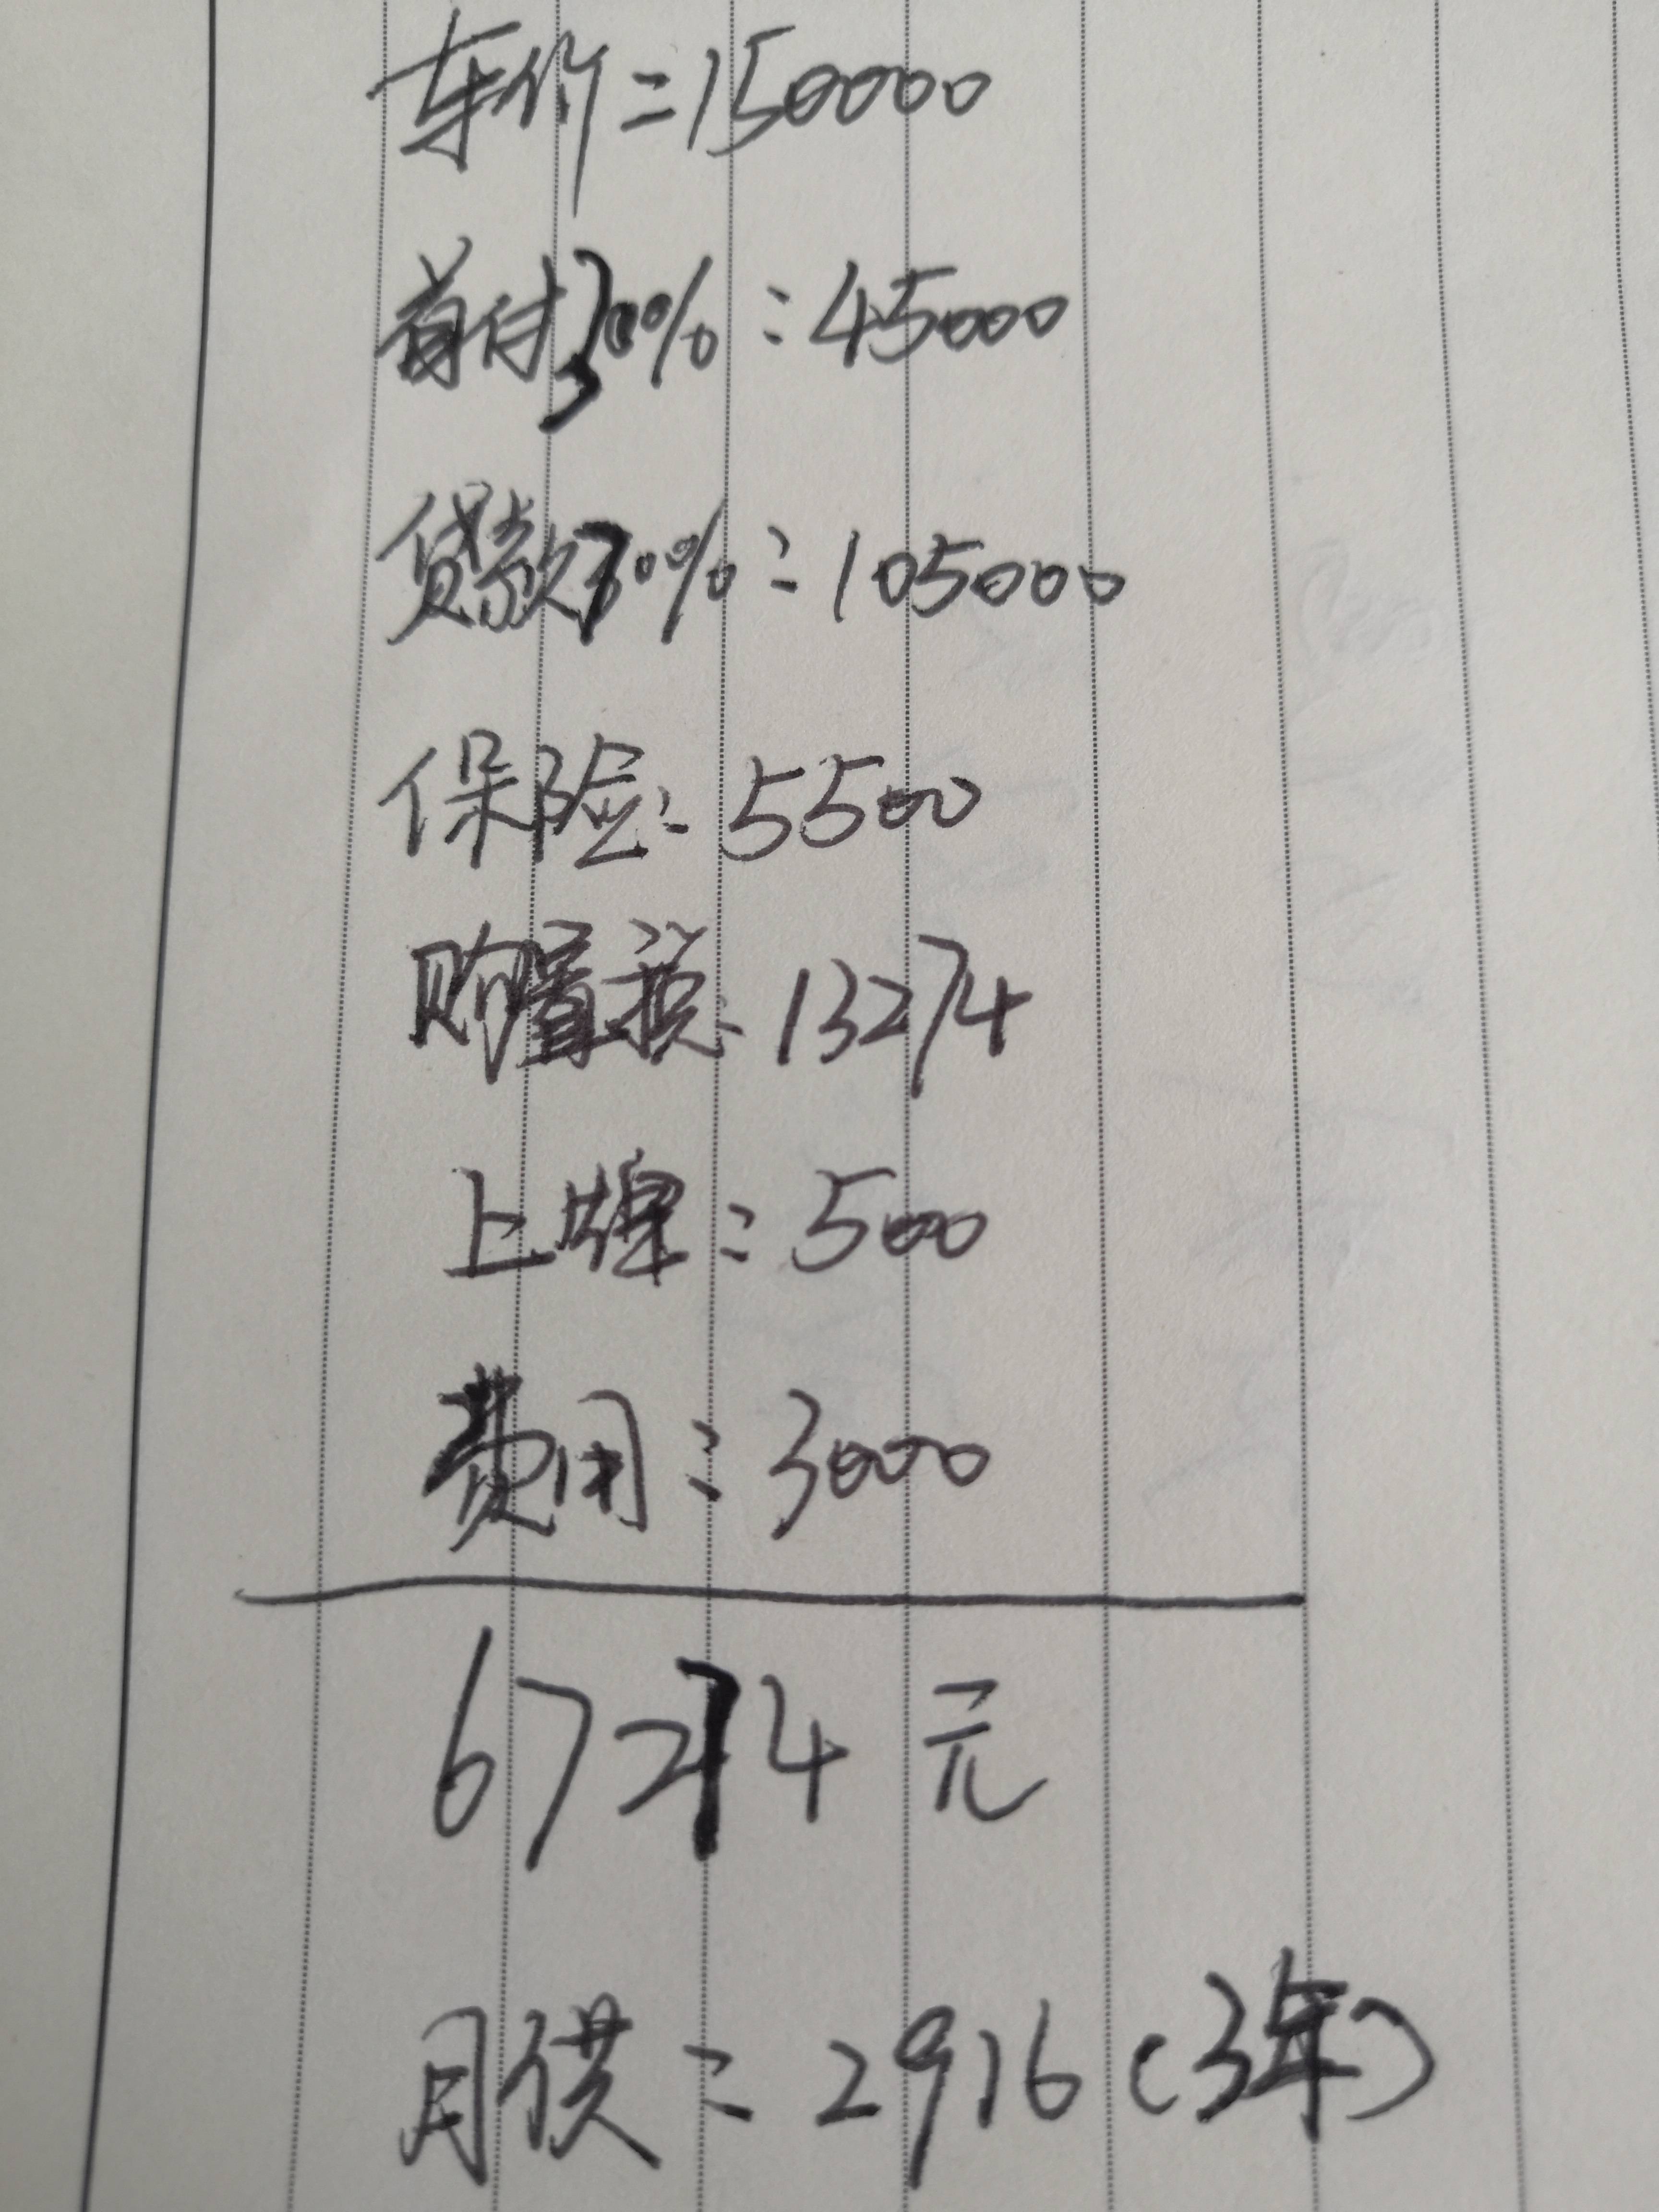 车价=150000
首付30%:45000
贷款70%:105000
保险:5500
购置税:13274
上牌:500
费用:3000
67274元
月供:2916(3年)